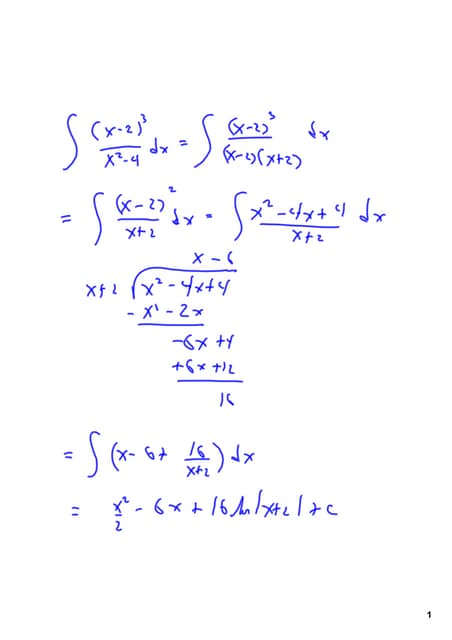 ∫ (x-2)³/(x²-4) dx = ∫ (x-2)³/((x-2)(x+2)) dx
= ∫ (x-2)²/(x+2) dx = ∫ (x²-4x+4)/(x+2) dx
x - 6
x+2 √(x² - 4x+4)
- x² - 2x
-6x +4
+6x +12
16
= ∫ (x - 6 + 16/(x+2)) dx
= x²/2 - 6x + 16 ln|x+2| + c
1